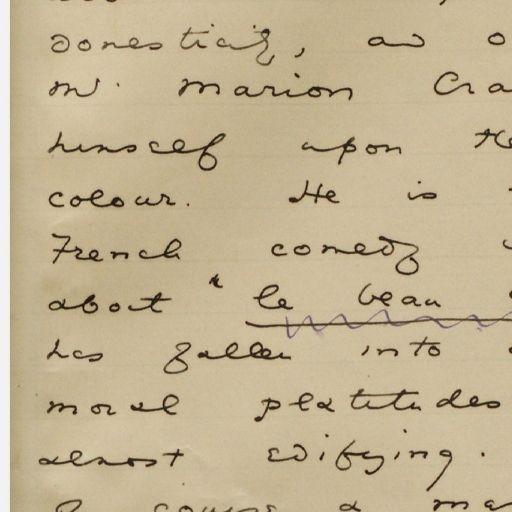 domesticity, and o
Mr. Marion Cra
himself upon the
colour. He is
French comedy
about "le beau
has fallen into
moral platitudes
almost edifying.